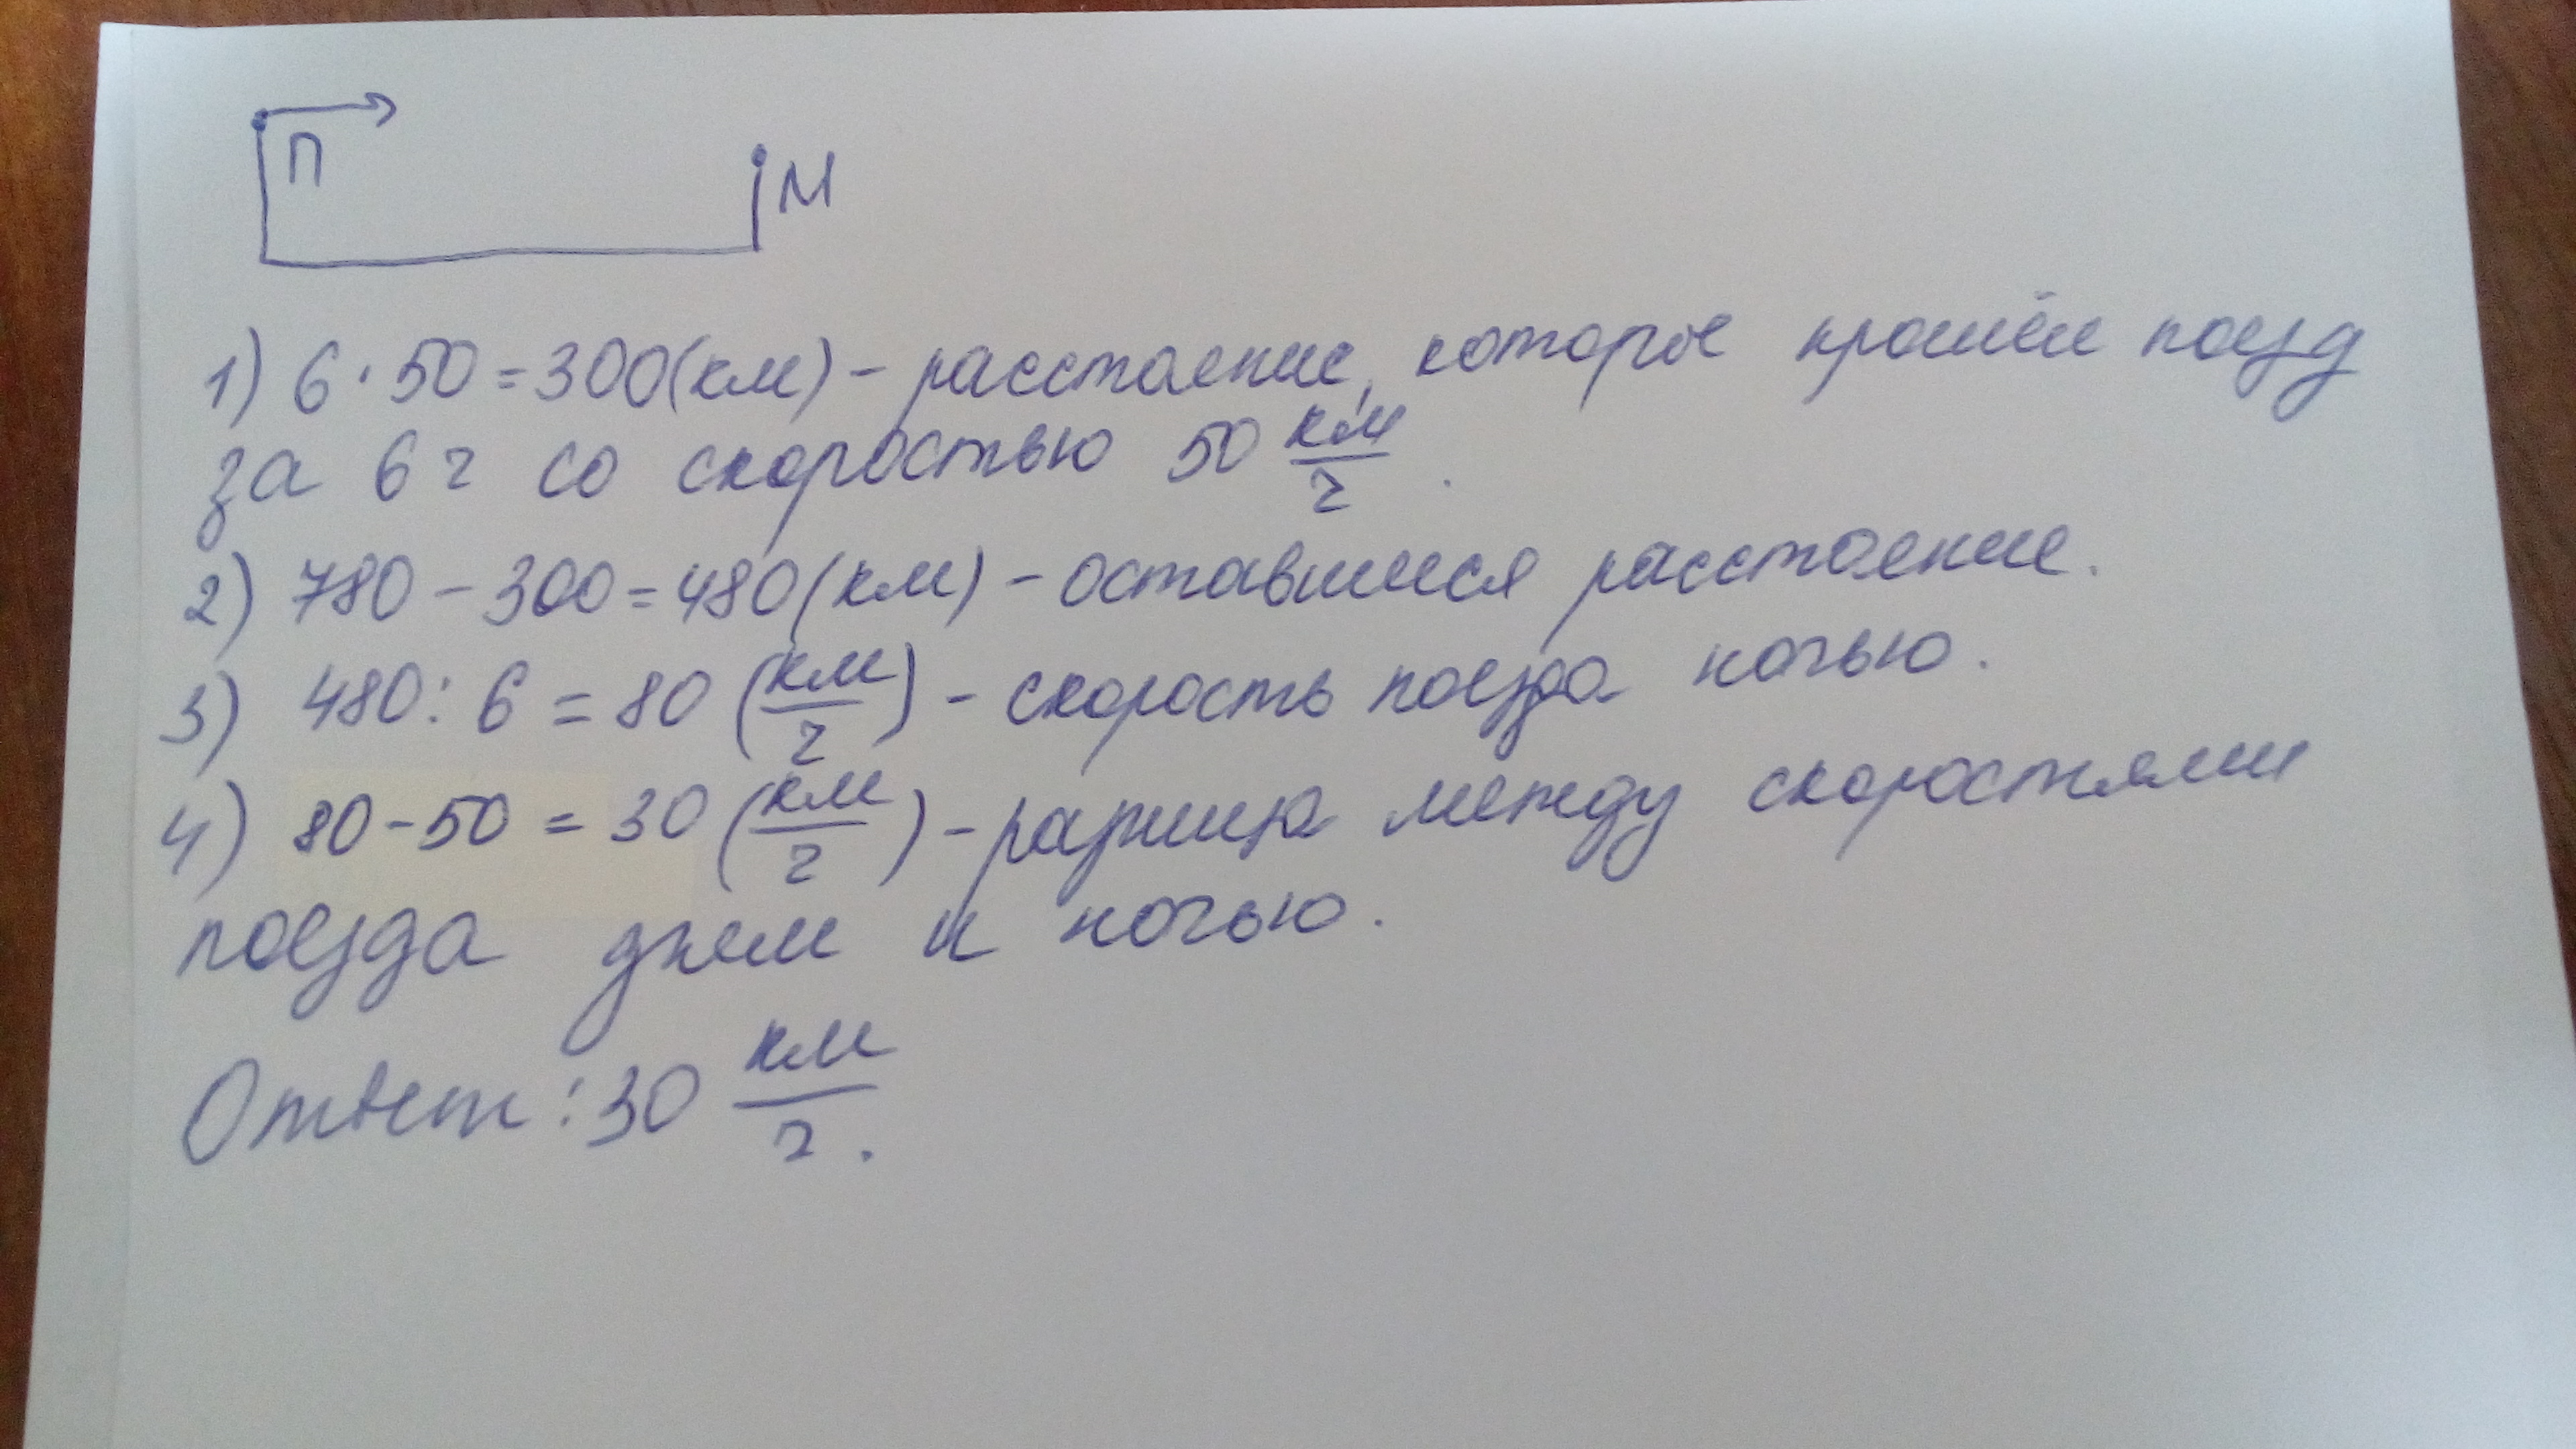 П
М
1) 6 · 50 = 300 (км) - расстояние, которое прошёл поезд
за 6 ч со скоростью 50 км/ч.
2) 780 - 300 = 480 (км) - оставшиеся расстояние.
3) 480 : 6 = 80 (км/ч) - скорость поезда ночью.
4) 80 - 50 = 30 (км/ч) - разница между скоростями
поезда днем и ночью.
Ответ: 30 км/ч.